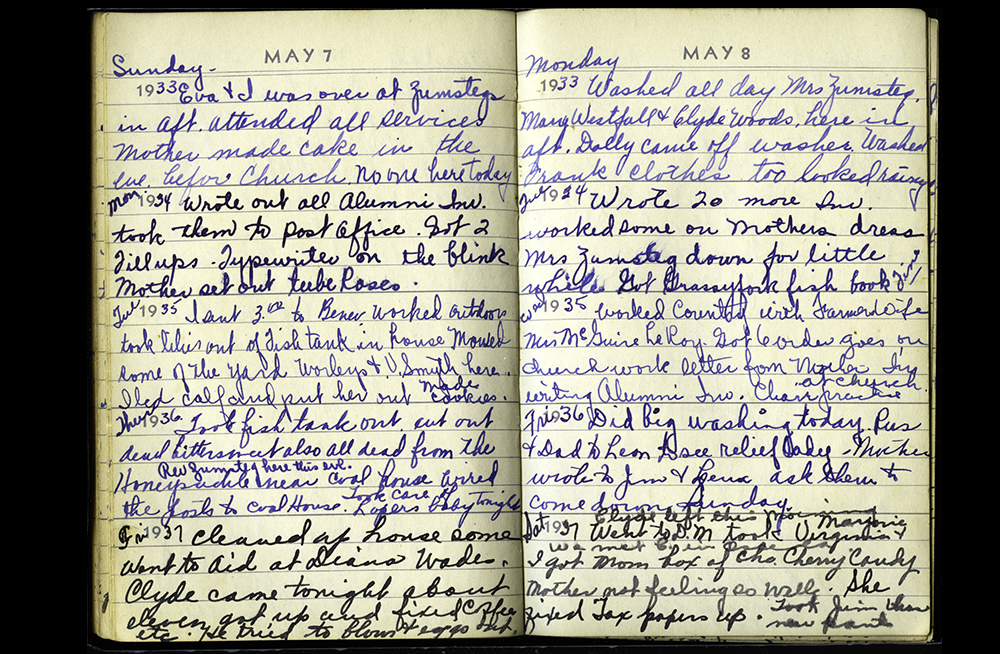 MAY 7
Sunday.
1933 Eva & I was over at Zumstegs
in aft. attended all services
Mother made cake in the
eve. befor Church. No one here today
Mon 1934 Wrote out all Alumni Inv.
took them to post office. Got 2
Fillups. Typewriter on the blink
Mother set out tube Roses.
Tue 1935 I sent 3.00 to Benev Worked outdoors
took lilies out of Fish tank in house Mowed
some of the yard Worleys & V. Smyth here.
I led calf and put her out made cookies.
Thur 1936 Took fish tank out cut out
dead bittersweet also all dead from the
Rev Zumsteg here this eve.
Honeysuckle near coal house wired
the posts to Coal House. Took care of
baby tonight
Fri 1937 cleaned up house some
went to Aid at Diana Wades.
Clyde came tonight about
eleven got up and fixed Coffee
etc. He tried to blow & eggs out.
MAY 8
Monday
1933 Washed all day Mrs Zumsteg.
Mary Westfall & Clyde Woods. here in
aft. Dolly came off washer. Washed
Frank clothes too looked rainy
Tue 1934 Wrote 20 more Inv.
worked some on Mothers dress
Mrs Zumsteg down for little
while Got Grassyfork fish book
Wed 1935 Worked Country with Farmers Wife
Mrs McGuire LeRoy. Got 6 order goes on
church work letter from Mother
writing Alumni Inv. Choir practice at church.
Fri 1936 Did big washing today. Pus
& Dad to Leon to see relief lady. Mother
wrote to Jim & Lena ask them to
come down Sunday.
Clyde left this morning
Sat 1937 Went to D.M took Virginia & Marjorie
I got Mom box of Cho. Cherry Candy
Mother not feeling so well. She
fixed Tax papers up. Took Jim them
new pants